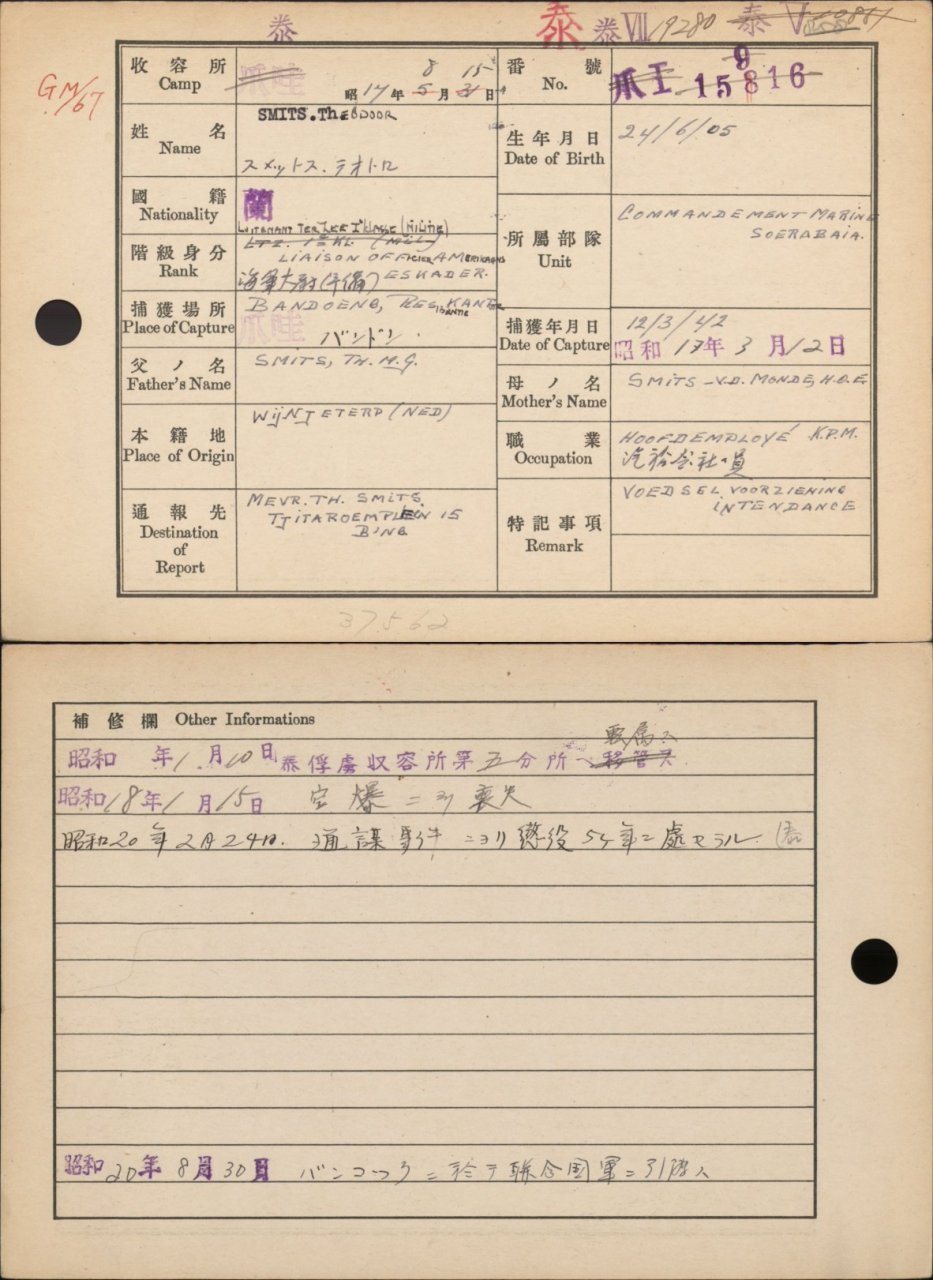 泰
泰 泰 VII 19280 泰 V
GM/67
收容所 Camp
爪哇
昭 17 年 8 5 月 15 31 日
番號 No.
爪工 15816 9
姓名 Name
SMITS. THEODOOR
スメットス. テオトロ
生年月日 Date of Birth
24/6/05
國籍 Nationality
蘭
所屬部隊 Unit
COMMANDEMENT MARINE
SOERABAIA.
階級身分 Rank
LUITENANT TER ZEE 1e KLASSE (MILITIE)
LTZ. 1e KL. (MIL)
LIAISON OFFICIER AMERIKAANS
ESKADER.
海軍大尉(予備)
捕獲場所 Place of Capture
BANDOENG, RESIDENTIE KANTOOR
爪哇 バンドン
捕獲年月日 Date of Capture
12/3/42
昭和 17年 3月12日
父ノ名 Father's Name
SMITS, TH. M.G.
母ノ名 Mother's Name
SMITS - V.D. MONDE, H.O.E.
本籍地 Place of Origin
WIJNJETERP (NED)
職業 Occupation
HOOFDEMPLOYÉ K.P.M.
通報先 Destination of Report
MEVR. TH. SMITS
TJITAROEMPLEIN 15
BING
特記事項 Remark
VOEDSEL VOORZIENING
INTENDANCE
37562
補修欄 Other Informations
昭和 年 1 月 10 日 泰俘虜収容所第五分所ヘ 移管ス 転属ス
昭和 18 年 1 月 15 日 空爆ニヨリ喪失
昭和20年2月24日. 通謀事件ニヨリ懲役5ケ年ニ處セラル. (泰
昭和 20 年 8 月 30 日 バンコックニ於テ聯合国軍ニ引渡ス